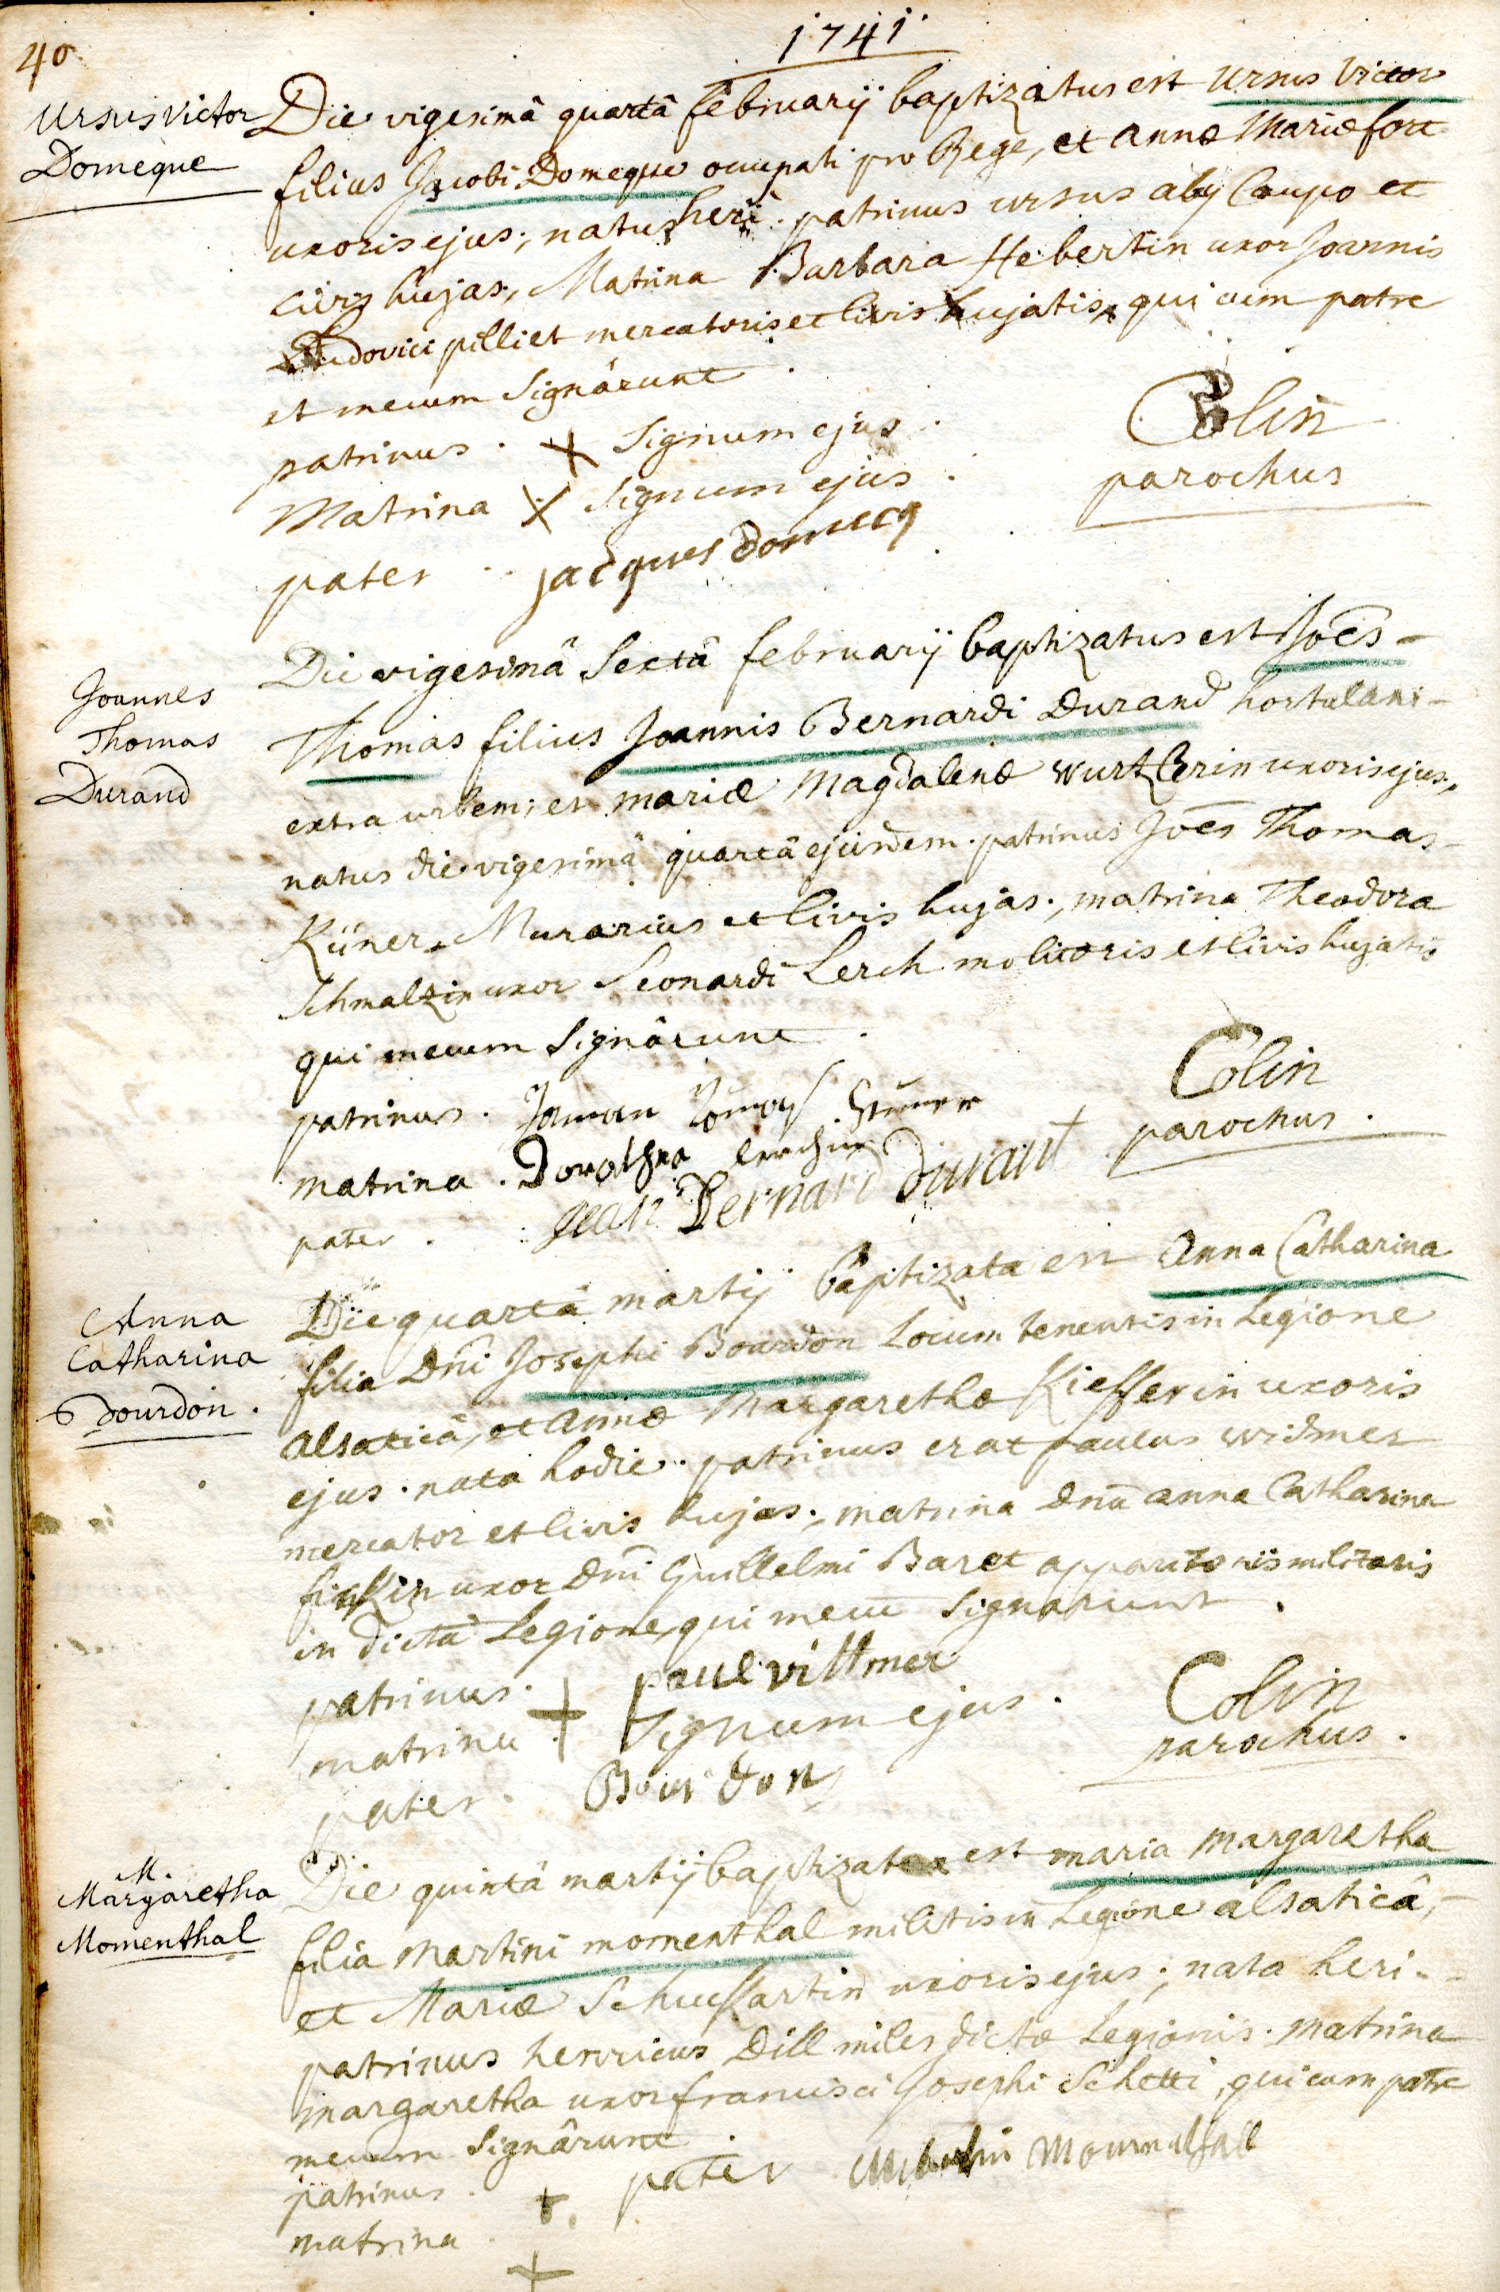 40
1741
Ursus Victor
Domeque
Die vigesimâ quartâ februarij baptizatus est Ursus Victor
filius Jacobi Domeque occupati pro Rege, et Annæ Mariæ fort
uxoris ejus; natus heri. patrinus ursus alij Caupo et
civis hujas, Matrina Barbara Hebertin uxor Joannis
Ludovici pilliet mercatoris et Civis hujatis, qui cum patre
et mecum Signârunt.
patrinus. + Signum ejus.
Matrina + Signum ejus.
pater. jacques domecq
Colin
parochus
Joannes
Thomas
Durand
Die vigesimâ Sextâ februarij baptizatus est Joës
Thomas filius Joannis Bernardi Durand hortulani
extra urbem; et mariæ Magdalenæ wurtzlerin uxoris ejus,
natus die vigesimâ quartâ ejusdem. patrinus Joës Thomas
Küner, Murarius et Civis hujas., matrina Theodora
Schmalzin uxor Leonardi Lerch molitoris et Civis hujatis
qui mecum Signârunt.
patrinus.
matrina. Dorothea lerchin
pater. jean Bernard Durant
Colin
parochus.
Anna
Catharina
Bourdon.
Die quartâ martij baptizata est Anna Catharina
filia Dni Josephi Bourdon Locum tenentis in Legione
alsaticâ, et Annæ Margarethæ Kiefferin uxoris
ejus. nata hodie. patrinus erat paulus widmer
mercator et Civis hujas., matrina Dna anna Catharina
uxor Dni Guillelmi Baret apparitoris militaris
in dictâ Legione, qui mecu Signarunt.
patrinus. paul vittmer
matrina + Signum ejus.
pater. Bourdon
Colin
parochus.
M.
Margaretha
Momenthal
Die quintâ martij baptizata est maria margaretha
filia Martini momenthal militis in Legione alsaticâ,
et Mariæ Schuffartin uxoris ejus; nata heri.
patrinus henricus Dill miles dictæ Legionis. matrina
margaretha uxor francisci Josephi Schetti, qui cum patre
mecum Signârunt.
patrinus. + pater Martin
matrina. +